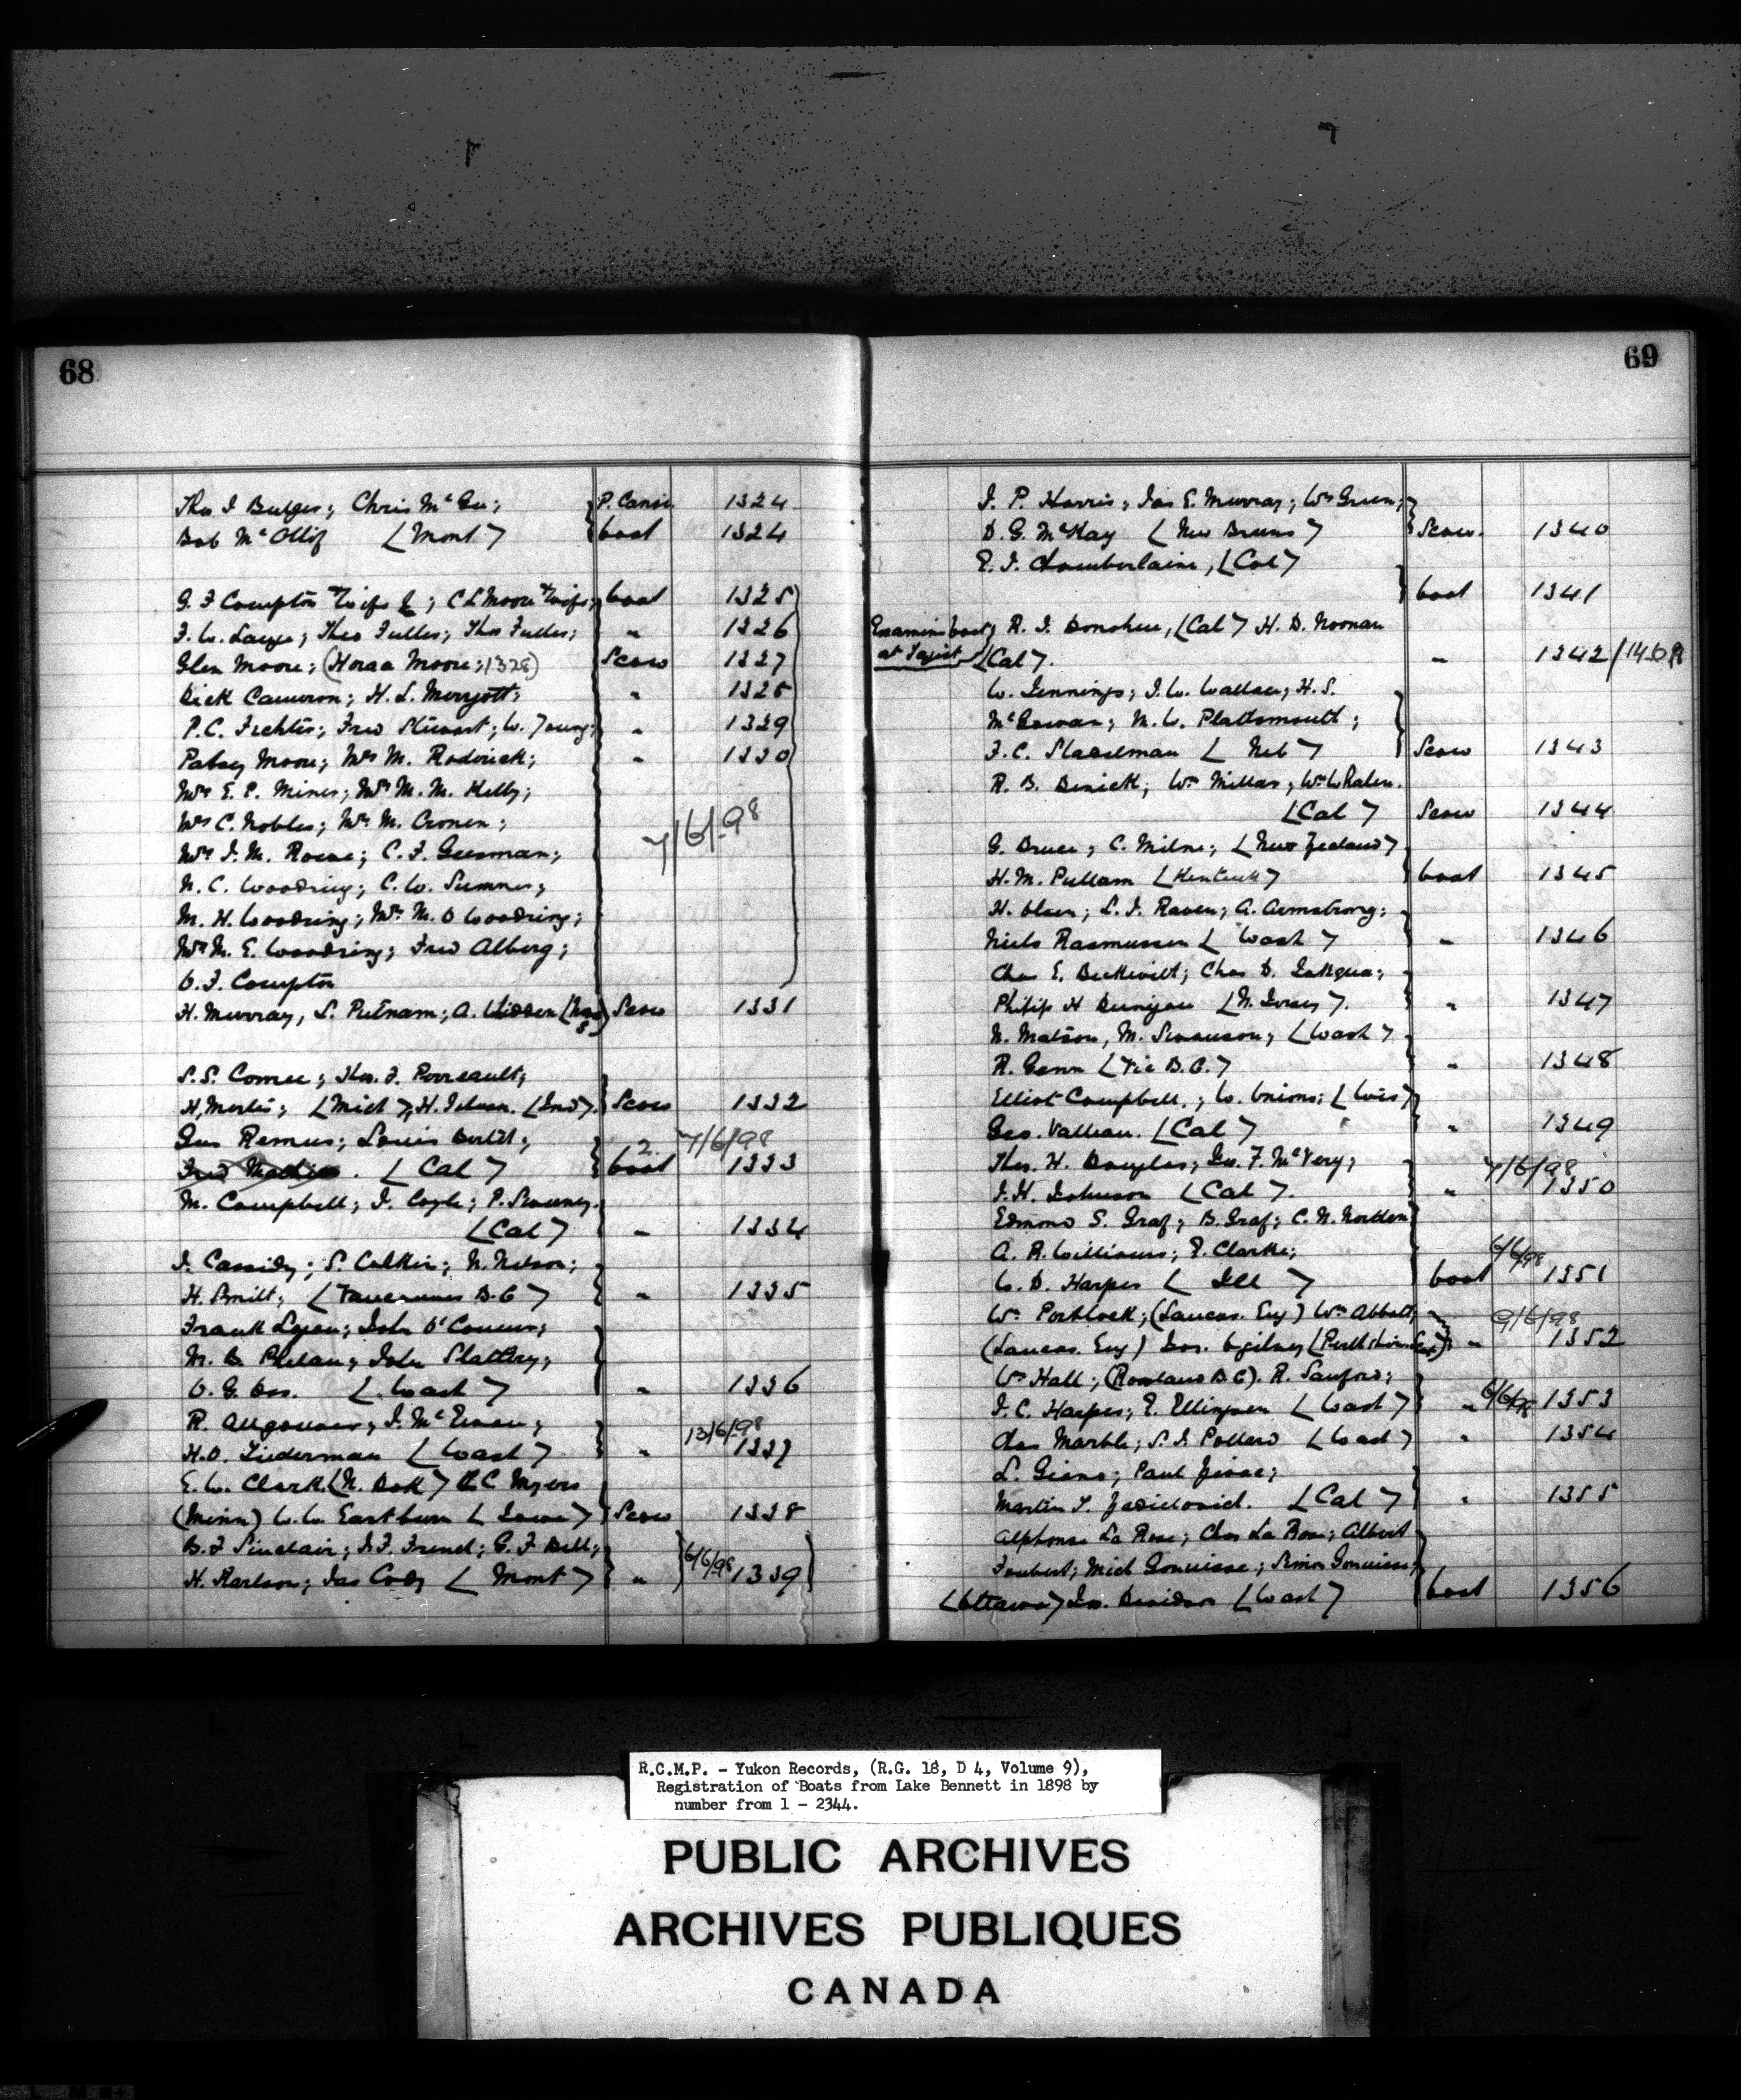 68
Thos J Bulger; Chris McGee; P. Canoe 1324
Bob McOllif (Mont) boat 1324
G. F Compton & wife; C L Moore & wife; boat 1325
F. W. Laye; Theo Fuller; Thos Fuller; " 1326
Glen Moore; (Horace Moore; 1328) Scow 1327
Dick Cameron; H. L. Meryott; " 1328
P. C. Fichter; Fred Stewart; W. Young; " 1329
Patsy Moore; Mrs M. Roderick; " 1330
Mrs E. P. Miner; Mrs M. M. Kelly;
Mrs C. Nobles; Mrs M. Cronen; 7/6/98
Mrs J. M. Rowe; C. F. Gusman;
N. C. Woodring; C. W. Sumner;
M. H. Woodring; Mrs M. O Woodring;
Mrs M. E. Woodring; Fred Alberg;
O. F. Compton
H. Murray, L. Putnam; A. Scow 1331
S. S. Comee; Thos. F. Perreault;
H. Mertes; (Mich); H. (Ind). Scow 1332
Gus Remus; Louis 2 7/6/98
Fred . (Cal) boat 1333
M. Campbell; J. Coyle; P. Sweeney.
(Cal) " 1334
J. Cassidy; S. Calkin; N. Nelson;
H. Smilt; (Vancouver B.C) " 1335
Frank Lyon; John O'Connor;
M. B. Phelan; John Slattery;
O. G. Oss. (Wash) " 1336
R. ; J. McEwan; 13/6/98
H. O. Tiederman (Wash) " 1337
E. W. Clark (N. Dak) C Myers
(Minn) W. W. Eastburn (Iowa) Scow 1338
B. F Sinclair; J. F. French; G. F Bell;
H. Karlson; Jas Cody (Mont) " 6/6/98 1339
69
J. P. Harris; Jas E. Murray; Wm Green;
D. G. McKay (New Bruns) Scow. 1340
E. J. Chamberlaine, (Cal)
boat 1341
Examine boat R. J. Donohue, (Cal) H. D. Noonan
at Tagish (Cal). " 1342/14.6.98
W. Jennings; J. W. Wallace; H. S.
McGowan; N. W. Plattsmouth;
F. C. Stadelman (Neb) Scow 1343
R. B. Denick; Wm Millar; Wm Whalen.
(Cal) Scow 1344
G. Bruce; C. Milne; (New Zealand)
H. M. Pullam (Kentuck) boat 1345
H. Olsen; L. J. Raven; A. Armstrong;
Niels Rasmussen (Wash) " 1346
Chas E. Beckwilt; Chas D. ;
Philip H (N. Jersey). " 1347
N. Matson, M. Swanson; (Wash)
R. Gann (Vic B.C.) " 1348
Elliot Campbell.; W. Onions; (Wis)
Geo. Valleau. (Cal) " 1349
Thos. H. Douglas; Geo. F. McVery; 7/6/98
J. H. Johnson (Cal). " 1350
Edmond S. Graf; B. Graf; C. N. Nortten
A. R. Williams; E. Clarke; 6/6/98
W. D. Harper (Ill) boat 1351
Wm Portlock; (Lancas. Eng) Wm Abbott; 9/6/98
(Lancas. Eng) Geo. Ogilvey (Perthshire Scot) " 1352
Wm Hall; (Rossland B.C). R. Sanford;
J. C. Harper; E. Ellingsen (Wash) " 6/6/98 1353
Chas Marble; S. J. Pollard (Wash) " 1354
L. ; Paul ;
Martin T. . (Cal) " 1355
Alphonse La Rose; Chas La Rose; Albert
Foubert; Mich ; Simon ;
(Ottawa) Jos. Davidson (Wash) boat 1356
R.C.M.P. - Yukon Records, (R.G. 18, D 4, Volume 9),
Registration of Boats from Lake Bennett in 1898 by
number from 1 - 2344.
PUBLIC ARCHIVES
ARCHIVES PUBLIQUES
CANADA